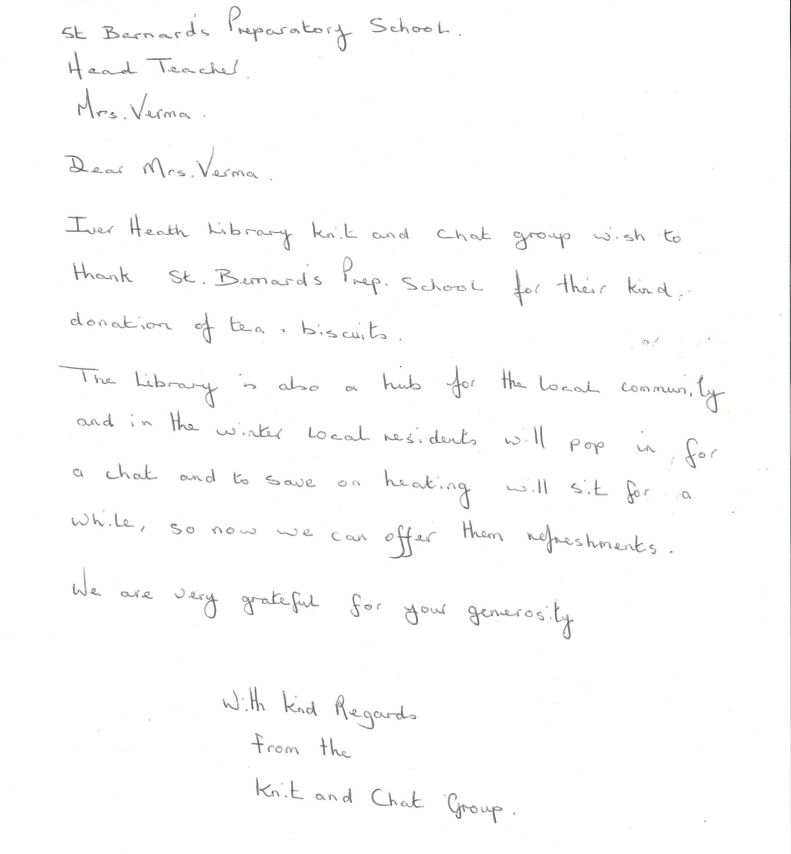 St Bernard's Preparatory School.
Head Teacher.
Mrs. Verma.
Dear Mrs. Verma.
Iver Heath Library knit and chat group wish to
thank St. Bernard's Prep. School for their kind.
donation of tea + biscuits.
The Library is also a hub for the local community
and in the winter local residents will pop in, for
a chat and to save on heating will sit for a
while, so now we can offer them refreshments.
We are very grateful for your generosity
With Kind Regards
from the
Knit and Chat Group.